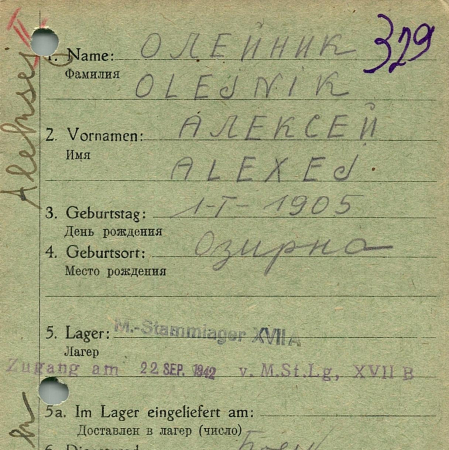 329
Aleksej II
1. Name: ОЛЕЙНИК
Фамилия
OLEJNIK
2. Vornamen: АЛЕКСЕЙ
Имя
ALEXEJ
3. Geburtstag: 1-I-1905
День рождения
4. Geburtsort: Озирна
Место рождения
5. Lager: M.-Stammlager XVII A
Лагерь
Zugang am 22. SEP. 1942 v. M.St.Lg, XVII B
5a. Im Lager eingeliefert am:
Доставлен в лагерь (число)